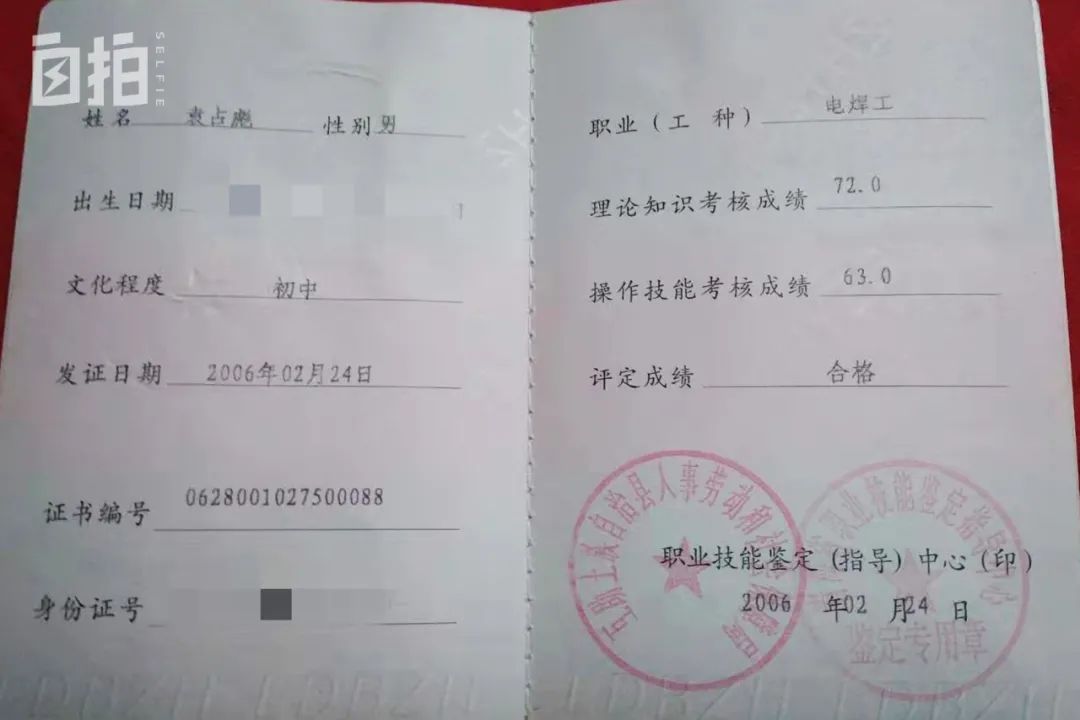 自拍
SELFIE
姓名 袁占彪 性别 男
出生日期
文化程度 初中
发证日期 2006年02月24日
证书编号 0628001027500088
身份证号
职业(工 种) 电焊工
理论知识考核成绩 72.0
操作技能考核成绩 63.0
评定成绩 合格
互助土族自治县人事劳动和
职业技能鉴定指导中心
职业技能鉴定(指导)中心(印)
2006 年02 月24 日
鉴定专用章